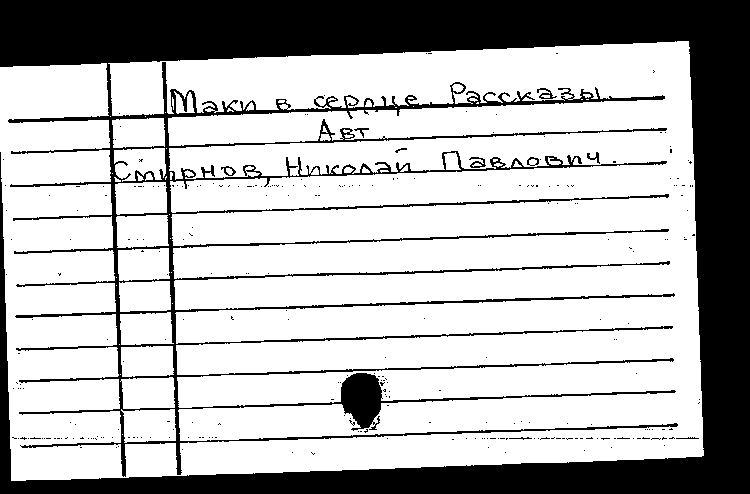 Маки в сердце. Рассказы.
Авт.
Смирнов, Николай Павлович.